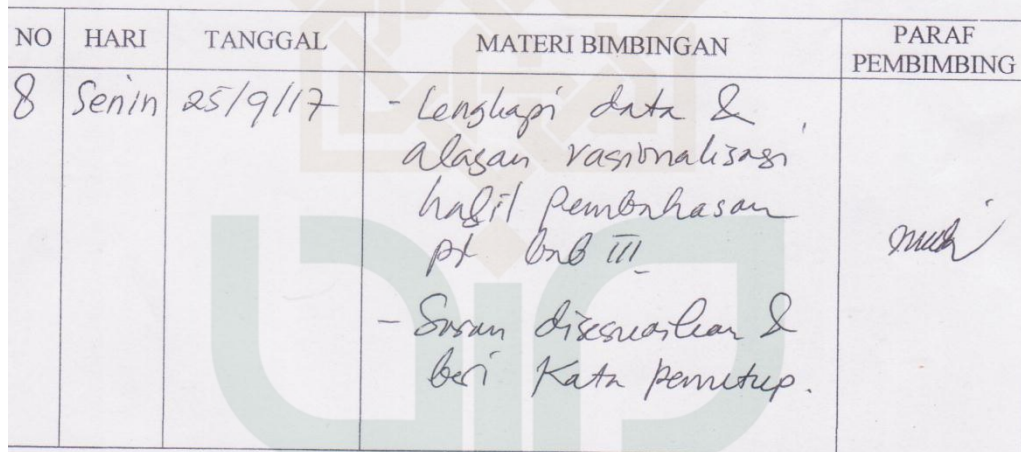 NO HARI TANGGAL MATERI BIMBINGAN PARAF PEMBIMBING
8 Senin 25/9/17 - Lengkapi data &
alasan rasionalisasi
hasil pembahasan
pd bab III
- Saran disesuaikan &
beri Kata penutup.